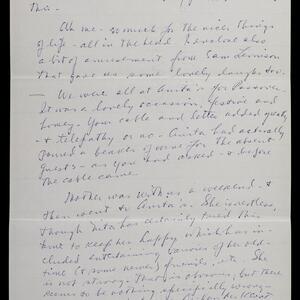 this -
Ah me - so much for the nicer things
of life - all in the head. I
a bit of amusement from Sam
that gave us some lovely laughs too.
We were all at Anita's for Passover.
It was a lovely occasion, festive and
homey - Your cable and letter added greatly
- & telepathy or no - Anita had actually
poured a beaker of wine for the absent
guests - as you had asked - & before
the cable came.
Mother was with us a weekend - &
then went to Anita's. She is restless,
though Nita has certainly tried this
time to keep her happy which has in-
cluded entertaining various of her old-
time (& some newer) friends, etc. She
is not strong. That is obvious, but there
seems to be nothing specifically wrong